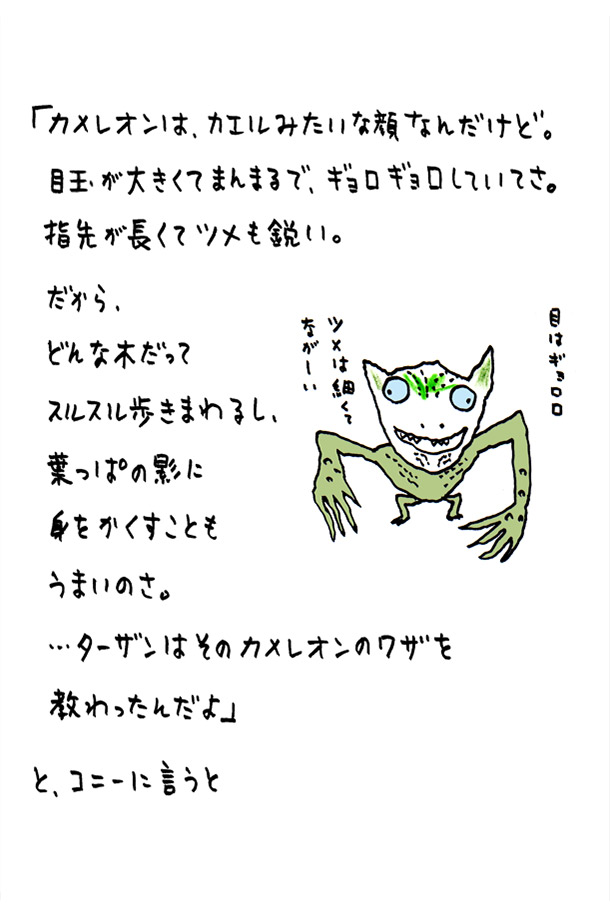 「カメレオンは、カエルみたいな顔なんだけど。
目玉が大きくてまんまるで、ギョロギョロしていてさ。
指先が長くてツメも鋭い。
だから、
どんな木だって
スルスル歩きまわるし、
葉っぱの影に
身をかくすことも
うまいのさ。
…ターザンはそのカメレオンのワザを
教わったんだよ」
と、コニーに言うと
目はギョロロ
ツメは細くて
ながーい